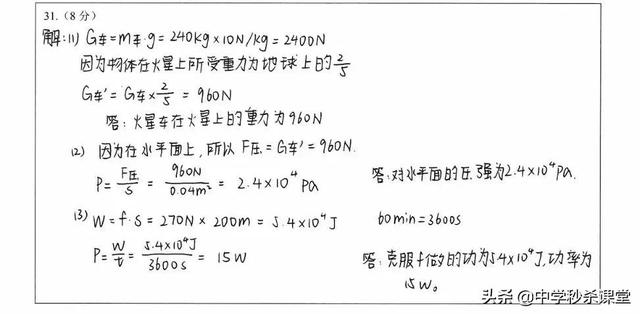 31. (8分)
解:(1) G车=m车·g=240kg×10N/kg=2400N
因为物体在火星上所受重力为地球上的2/5
G车'=G车×2/5=960N
答:火星车在火星上的重力为960N
(2) 因为在水平面上,所以F压=G车'=960N.
P=F压/S=960N/0.04m²=2.4×10⁴Pa
答:对水平面的压强为2.4×10⁴Pa.
(3) W=f·S=270N×200m=5.4×10⁴J
60min=3600s
P=W/t=5.4×10⁴J/3600s=15W
答:克服f做的功为5.4×10⁴J,功率为
15W。
头条@中学秒杀课堂